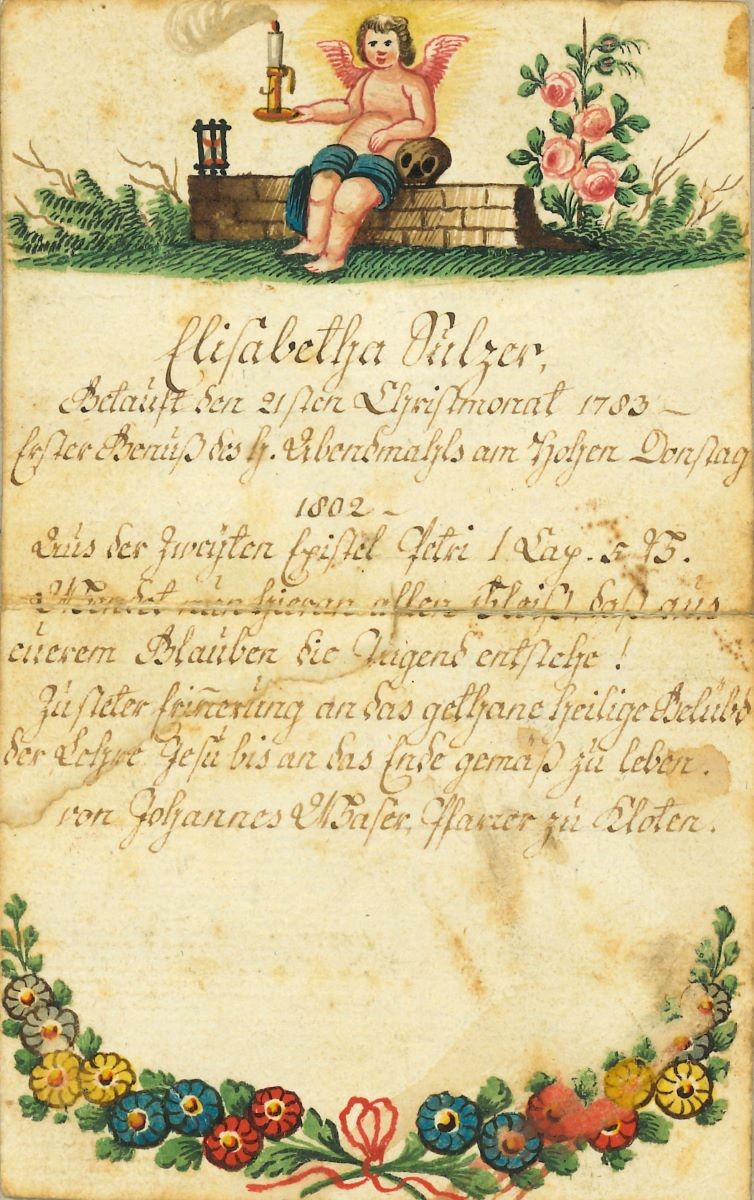 Elisabetha Sulzer,
Getauft den 21sten Christmonat 1783 –
Erster Genuß des h. Abendmahls am Hohen Donstag
1802 –
Aus der Zweyten Epistel Petri 1 Cap. 5 V.
Wendet nun hieran allen Fleiß, daß aus
euerem Glauben die Tugend entstehe !
Zu steter Erin̄erung an das gethane heilige Gelübd
der Lehre Jesu bis an das Ende gemäß zu leben.
von Johannes Waser, Pfarrer zu Kloten.